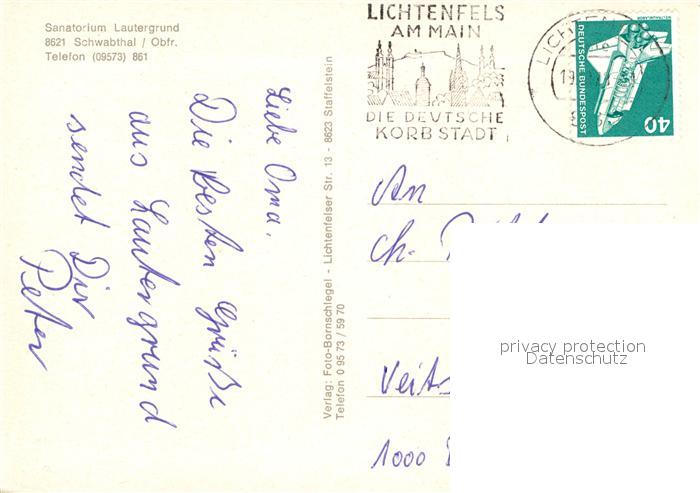 Sanatorium Lautergrund
8621 Schwabthal / Obfr.
Telefon (09573) 861
Liebe Oma.
Die besten Grüße
aus Lautergrund
sendet Dir
Peter
Verlag: Foto-Bornschlegel - Lichtenfelser Str. 13 - 8623 Staffelstein
Telefon 0 95 73 / 59 70
LICHTENFELS
AM MAIN
DIE DEUTSCHE
KORBSTADT
LICHTENF
19
DEUTSCHE BUNDESPOST
40
An
Ch.
Veit
1000
privacy protection
Datenschutz